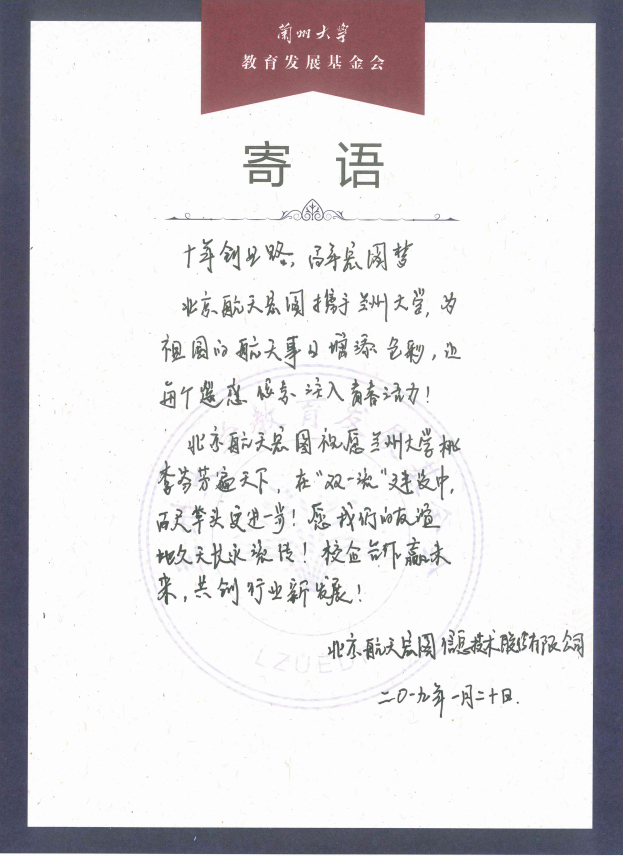 兰州大学
教育发展基金会
寄语
十年创业路，百年宏图梦
北京航天宏图携手兰州大学，为
祖国的航天事业增添色彩，让
每个遥感像素注入青春活力！
北京航天宏图祝愿兰州大学桃
李芬芳遍天下，在“双一流”建设中，
百尺竿头更进一步！愿我们的友谊
地久天长永流传！校企合作赢未
来，共创行业新发展！
北京航天宏图信息技术股份有限公司
二〇一九年一月二十日.